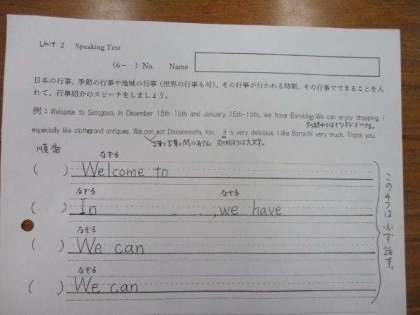 Unit 2 Speaking Test
(6- ) No. Name
日本の行事、季節の行事や地域の行事(世界の行事も可)、その行事が行われる時期、その行事でできることを入
れて、行事紹介のスピーチをしましょう。
例：Welcome to Setagaya. In December 15th-16th and January 15th-16th, we have Boroichi. We can enjoy shopping. I
especially like clothes and antiques. We can eat Daikanmochi, too. It is very delicious. I like Boroichi very much. Thank you.
順番
なぞる
( ) Welcome to
なぞる なぞる
( ) In , we have
なぞる
( ) We can
なぞる
( ) We can
この4つは必ず話す。